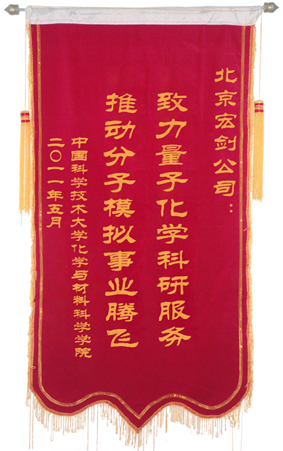 北京宏剑公司：
致力量子化学科研服务
推动分子模拟事业腾飞
中国科学技术大学化学与材料科学学院
二〇一一年五月